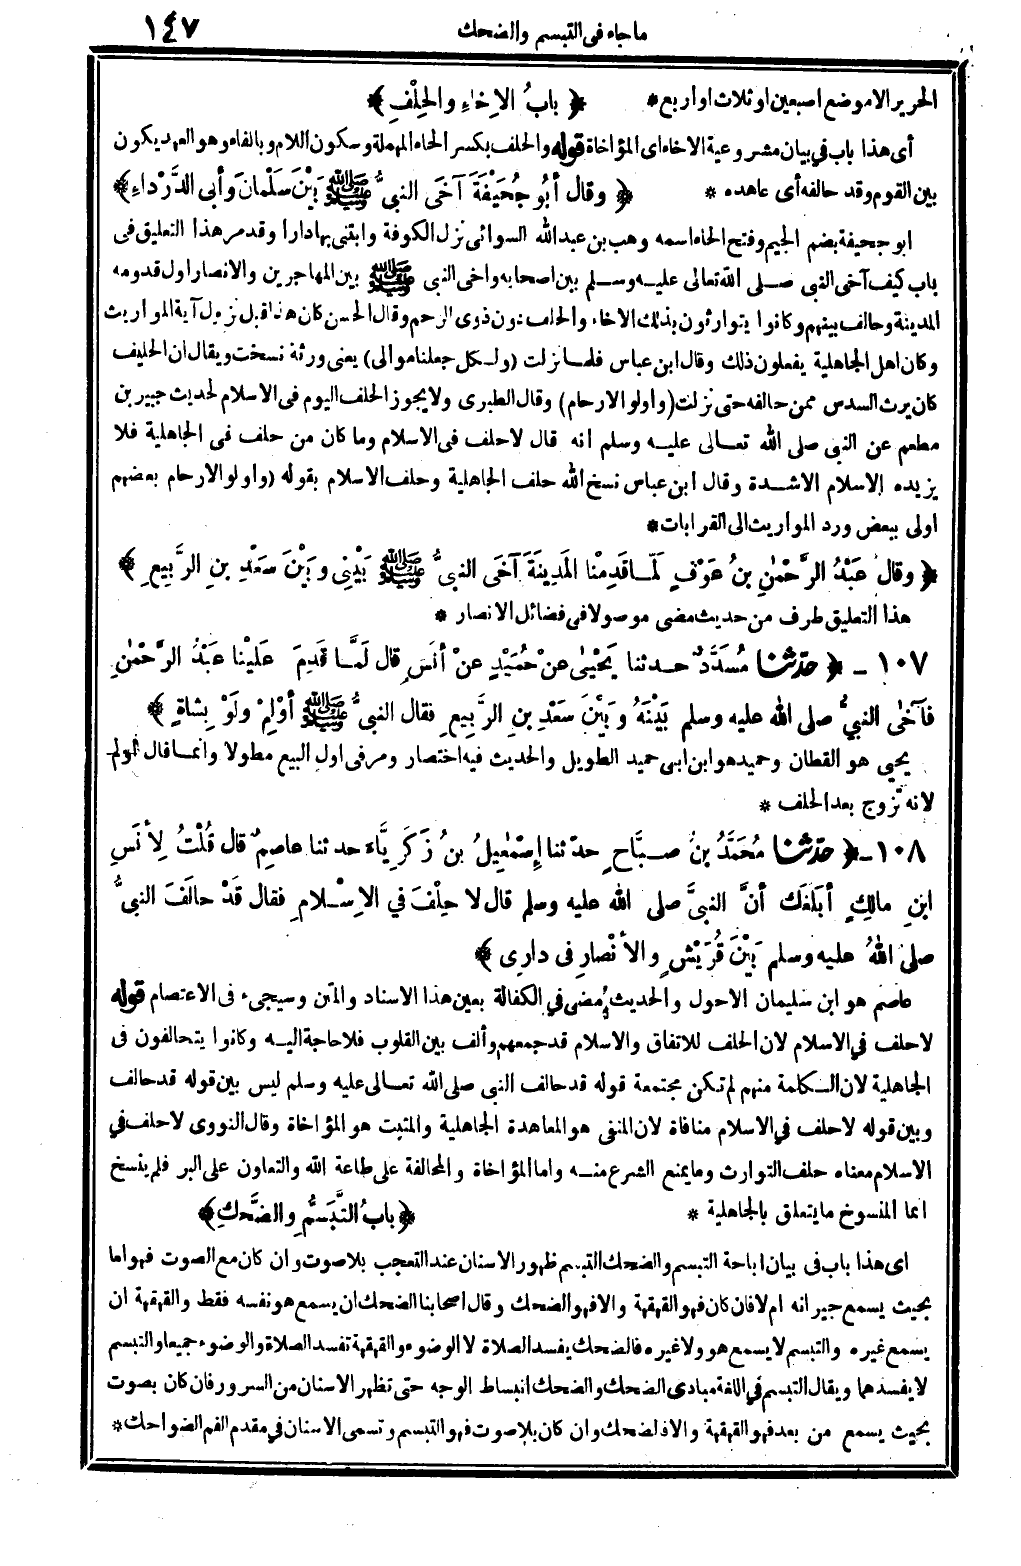 ما جاء في التبسم والضحك ١٤٧
الحرير الا موضع اصبعين او ثلاث او اربع * ﴿ بابُ الإخاءِ والحِلْفِ ﴾
أى هذا باب في بيان مشروعية الاخاء اى المؤاخاة قوله والحلف بكسر الحاء المهملة وسكون اللام وبالفاء وهو العهد يكون
بين القوم وقد حالفه أى عاهده * ﴿ وقال أبُو جُحَيْفَةَ آخَى النبيُّ ﷺ بَيْنَ سَلْمانَ وأبى الدَّرْداءِ ﴾
ابو جحيفة بضم الجيم وفتح الحاء اسمه وهب بن عبدالله السوائى نزل الكوفة وابتنى بها دارا وقد مر هذا التعليق فى
باب كيف آخى النبى صلى الله تعالى عليه وسلم بين اصحابه واخى النبى ﷺ بين المهاجرين والانصار اول قدومه
المدينة وحالف بينهم وكانوا يتوارثون بذلك الاخاء والحلف دون ذوى الرحم وقال الحسن كان هذا قبل نزول آية المواريث
وكان اهل الجاهلية يفعلون ذلك وقال ابن عباس فلما نزلت (ولكل جعلنا موالى) يعنى ورثة نسخت ويقال ان الحليف
كان يرث السدس ممن حالفه حتى نزلت (وأولو الارحام) وقال الطبرى ولا يجوز الحلف اليوم فى الاسلام لحديث جبير بن
مطعم عن النبى صلى الله تعالى عليه وسلم انه قال لا حلف فى الاسلام وما كان من حلف فى الجاهلية فلا
يزيده الاسلام الا شدة وقال ابن عباس نسخ الله حلف الجاهلية وحلف الاسلام بقوله (واولو الارحام بعضهم
اولى ببعض ورد المواريث الى القرابات *
﴿ وقال عَبْدُ الرَّحْمٰنِ بنُ عَوْفٍ لَمَّا قَدِمْنا المَدِينَةَ آخَى النبيُّ ﷺ بَيْنِي وبَيْنَ سَعْدِ بنِ الرَّبِيعِ ﴾
هذا التعليق طرف من حديث مضى موصولا فى فضائل الانصار *
١٠٧ - ﴿ حدّثنا مُسَدَّدٌ حدثنا يَحْيٰى عنْ حُمَيْدٍ عنْ أنَسٍ قال لَمَّا قَدِمَ عَلَيْنا عبْدُ الرَّحْمٰنِ
فآخٰى النبيُّ صلى الله عليه وسلم بَيْنَهُ وبَيْنَ سَعْدِ بنِ الرَّبِيعِ فقال النبيُّ ﷺ أوْلِمْ ولَوْ بِشاةٍ ﴾
يحيي هو القطان وحميد هو ابن ابى حميد الطويل والحديث فيه اختصار ومر فى اول البيع مطولا وانما قال اولم
لانه تزوج بعد الحلف *
١٠٨ - ﴿ حدّثنا مُحَمَّدُ بنُ صبَّاحٍ حدّثنا إسْمٰعِيلُ بنُ زَكَرِيَّاءَ حدثنا عاصِمٌ قال قُلْتُ لِأنَسِ
ابنِ مالِكٍ أبَلَغَكَ أنَّ النبيَّ صلى الله عليه وسلم قال لا حِلْفَ في الإسْلامِ فقال قَدْ حالَفَ النبيُّ
صلى اللهُ عليه وسلم بَيْنَ قُرَيْشٍ والأنْصارِ فى دارِى ﴾
عاصم هو ابن سليمان الاحول والحديث مُضى في الكفالة بعين هذا الاسناد والمتن وسيجىء فى الاعتصام قوله
لا حلف في الاسلام لان الحلف للاتفاق والاسلام قد جمعهم وألف بين القلوب فلا حاجة اليه وكانوا يتحالفون فى
الجاهلية لان الكلمة منهم لم تكن مجتمعة قوله قد حالف النبى صلى الله تعالى عليه وسلم ليس بين قوله قد حالف
وبين قوله لا حلف في الاسلام منافاة لان المنفى هو المعاهدة الجاهلية والمثبت هو المؤاخاة وقال النووى لا حلف في
الاسلام معناه حلف التوارث وما يمنع الشرع منه واما المؤاخاة والمحالفة على طاعة الله والتعاون على البر فلم ينسخ
انما المنسوخ ما يتعلق بالجاهلية * ﴿ بابُ التَّبَسُّمِ والضَّحِكِ ﴾
اى هذا باب فى بيان اباحة التبسم والضحك التبسم ظهور الاسنان عند التعجب بلا صوت وان كان مع الصوت فهو اما
بحيث يسمع جيرانه ام لا فان كان فهو القهقهة والا فهو الضحك وقال اصحابنا الضحك ان يسمع هو نفسه فقط والقهقهة ان
يسمع غيره والتبسم لا يسمع هو ولا غيره فالضحك يفسد الصلاة لا الوضوء والقهقهة تفسد الصلاة والوضوء جميعا والتبسم
لا يفسدهما ويقال التبسم في اللغة مبادى الضحك والضحك انبساط الوجه حتى تظهر الاسنان من السرور فان كان بصوت
بحيث يسمع من بعد فهو القهقهة والا فالضحك وان كان بلا صوت فهو التبسم وتسمى الاسنان في مقدم الفم الضواحك *